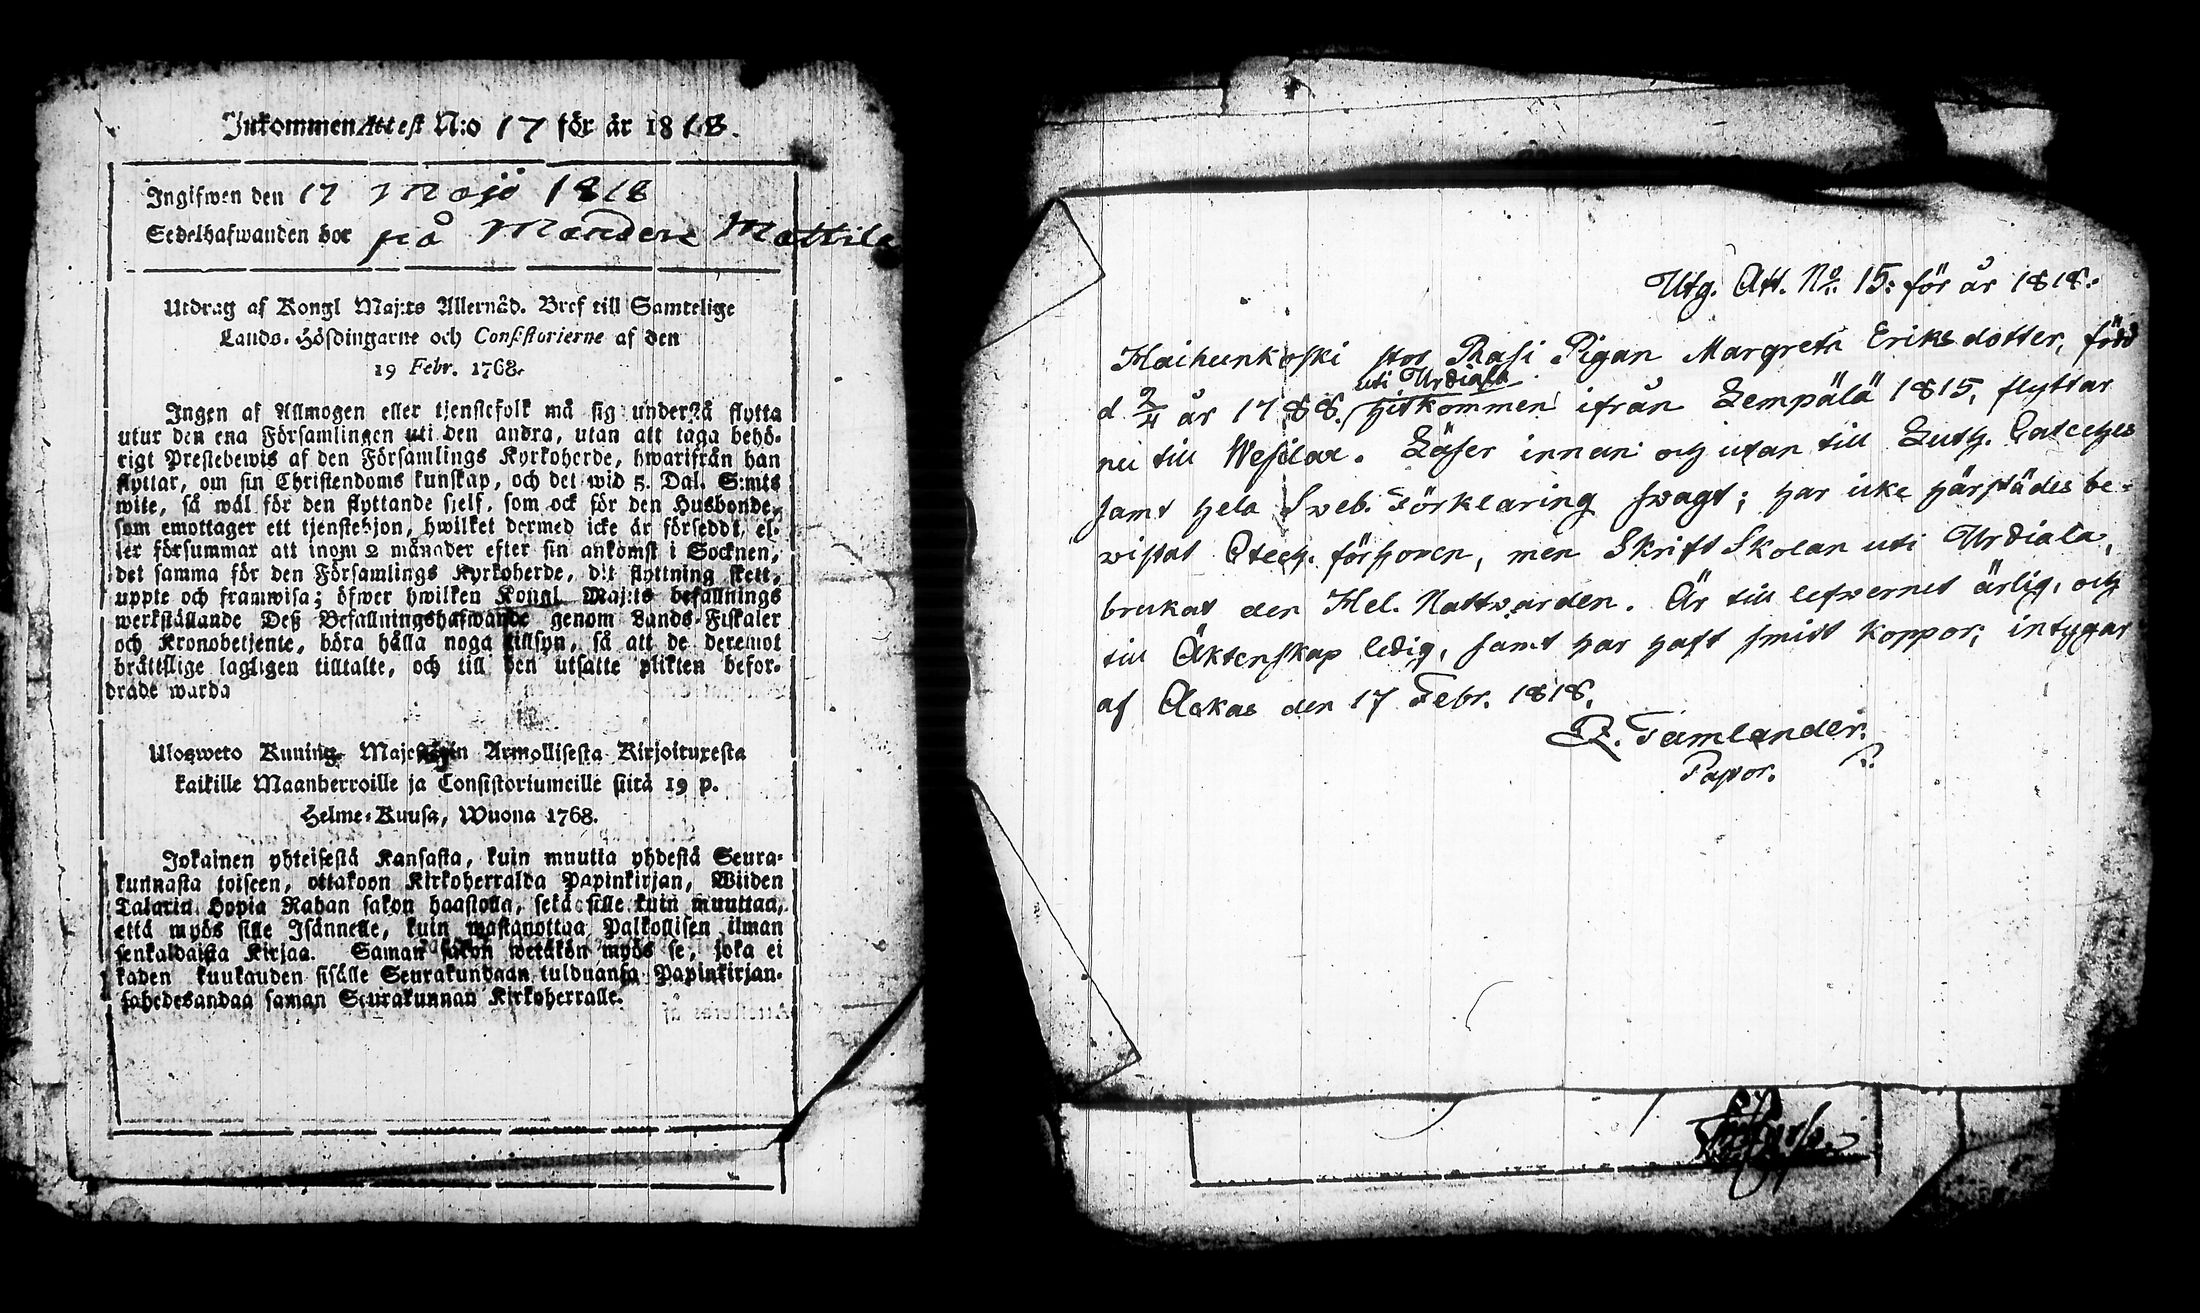 Inkommen Attest N:o 17 för år 1818.
Ingifwen den 17 Maji 1818
Sedelhafwanden bor på Mandere Mattila
Utdrag af Kongl Maj:ts Allernåd. Bref till Samtelige
Lands-Höfdingarne och Consistorierne af den
19 Febr. 1768.
Ingen af Allmogen eller tjenstefolk må sig understå flytta
utur den ena Församlingen uti den andra, utan att taga behö-
rigt Prestebewis af den Församlings Kyrkoherde, hwarifrån han
flyttar, om sin Christendoms kunskap, och det wid 5. Dal. S:mts
wite, så wäl för den flyttande sielf, som ock för den Husbonde,
som emottager ett tjenstehjon, hwilket dermed icke är förseddt, el-
ler försummar att inom 2 månader efter sin ankomst i Socknen,
det samma för den Församlings Kyrkoherde, dit flyttning skett,
uppte och framwisa; öfwer hwilken Kongl Maj:ts befallnings
werkställande Deß Befallningshafwande genom Lands-Fiskaler
och Kronobetjente, böra hålla noga tillsyn, så att de deremot
bråttslige lagligen tilltalte, och till den utsatte plikten befor-
drade warda
Ulosweto Kuning. Majestetin Armollisesta Kirjoituxesta
kaikille Maanherroille ja Consistoriumeille siitä 19 p.
Helme-Kuusa, Wuona 1768.
Jokainen yhteisestä Kansasta, kuin muutta yhdestä Seura-
kunnasta toiseen, ottakoon Kirkoherralda Papinkirjan, Wiiden
Talarin Hopia Rahan sakon haastolla, sekä sille kuin muuttaa,
että myös sille Isännelle, kuin wastanottaa Palkollisen ilman
senkaldaista Kirjaa. Saman sakon wetäkön myös se, joka ei
kahen kuukauden sisälle Seurakundaan tulduansa Papinkirjan-
sahedesandaa saman Seurakunnan Kirkoherralle.
Utg. Att. No. 15: för år 1818.
Haihunkoski stor Rasi Pigan Margreta Eriksdotter, född
uti Urdiala
d 2/4 år 1788. hitkommen ifrån Lempälä 1815, flyttar
nu till Wesilax. Läser innan och utan till Luth. Cateches
samt hela Sweb. Förklaring swagt; har icke härstädes be-
wistat Ctech. förhören, men Skrift Skolan uti Urdiala,
brukat den Hel. Nattwarden. Är till lefwernet ärlig, och
till Äktenskap ledig, samt har haft smitt koppor; intygar
af Ackas den 17 Febr. 1818.
R. Tamlander.
Pastor.